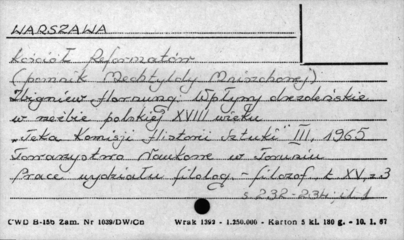 WARSZAWA
Kościół Reformatów
(pomnik Mechtyldy Mniszchowej)
Zbigniew Hornung: Wpływy drezdeńskie
w rzeźbie polskiej XVIII wieku
"Teka Komisji Historii Sztuki" III, 1965
Towarzystwo Naukowe w Toruniu
Prace wydziału filolog.-filozof. t. XV, z 3
s 232-234; il. 1
CWD B-156 Zam. Nr 1039/DW/Cn Wrak 1392 - 1.250.000 - Karton 5 kl. 180 g. - 10. 1. 67